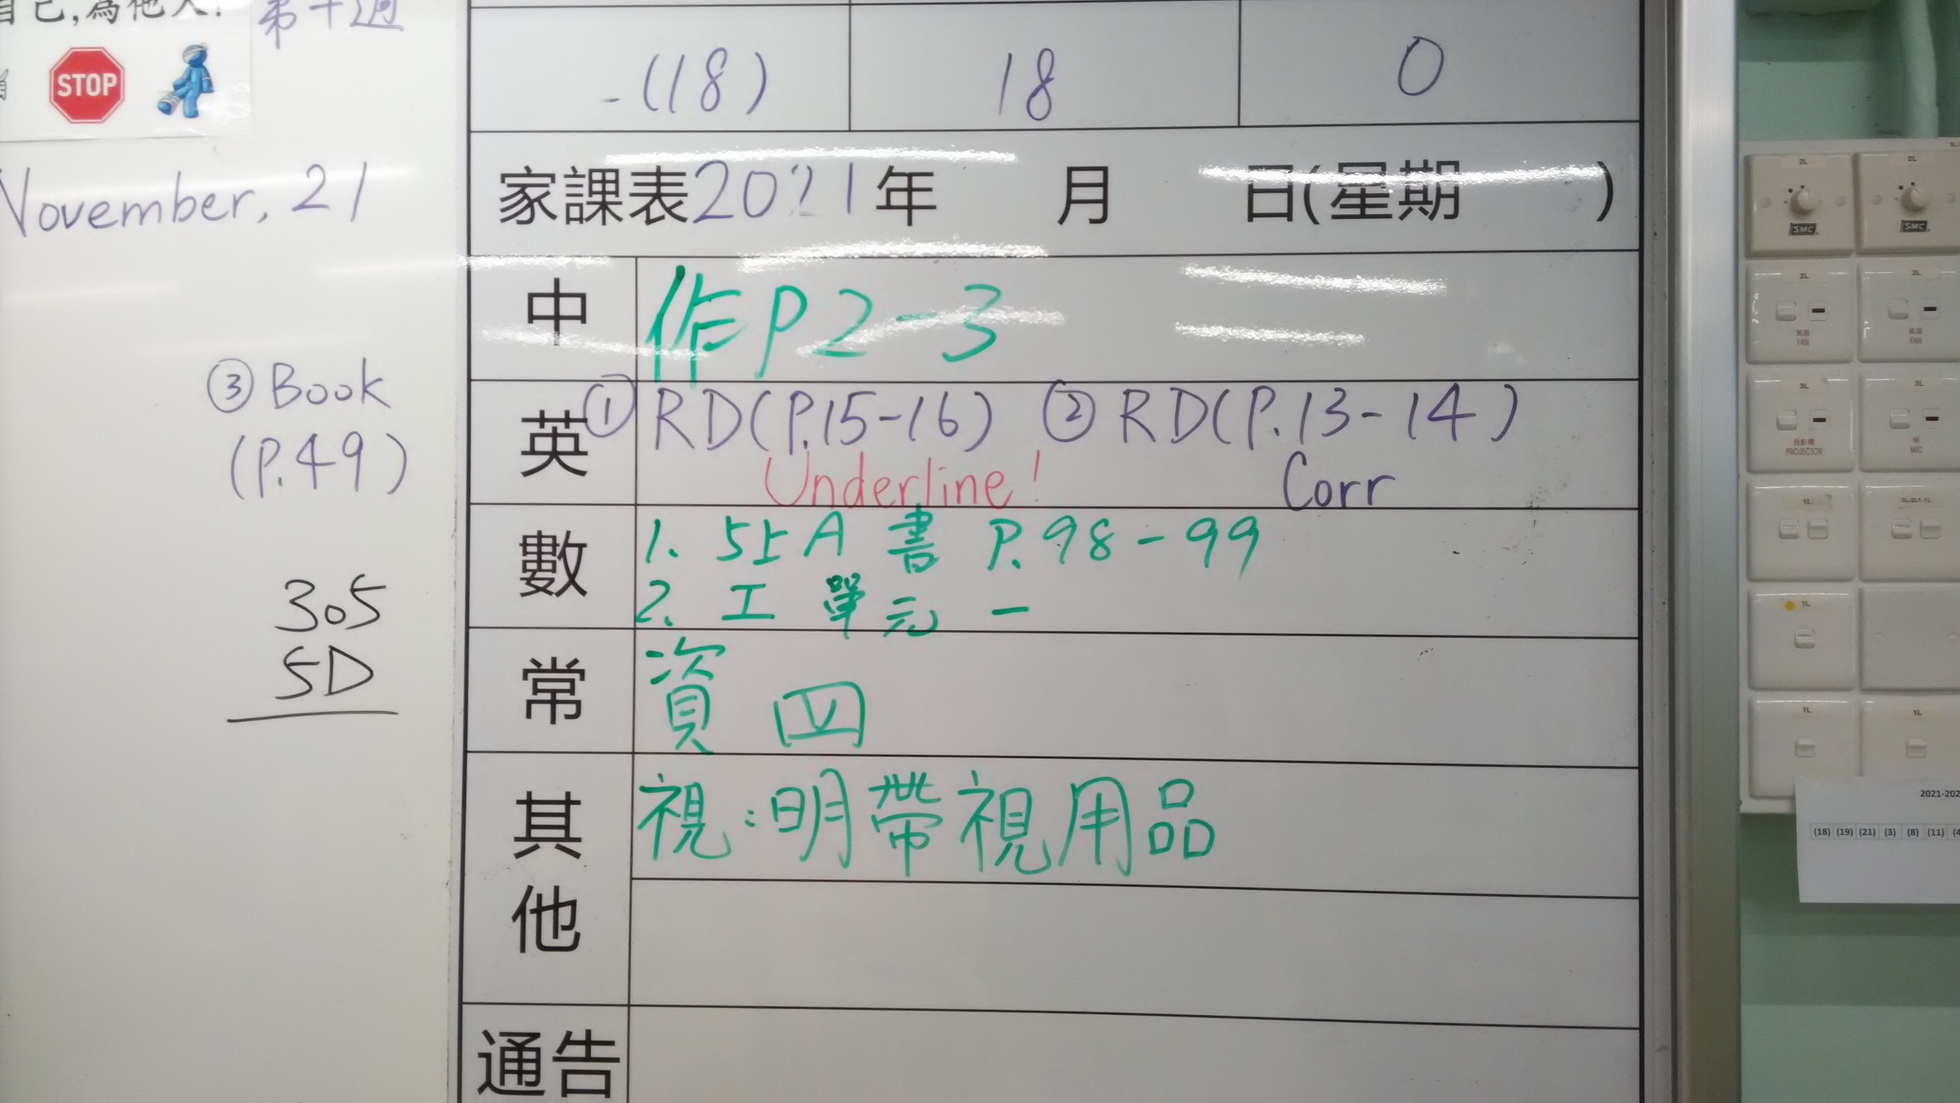 自己,為他人!
第十週
STOP
-(18) 18 0
November, 21
家課表2021年 月 日(星期 )
中 作P2-3
英 ①RD(P.15-16) ②RD(P.13-14)
Underline! Corr
③Book
(P.49)
數 1. 5上A 書 P.98-99
2. 工 單元 一
305
5D
常 資 四
其他 視:明帶視用品
通告
SMC
SMC
風扇
FAN
風扇
FAN
投影機
PROJECTOR
MIC
2021-202
(18) (19) (21) (3) (8) (11) (4